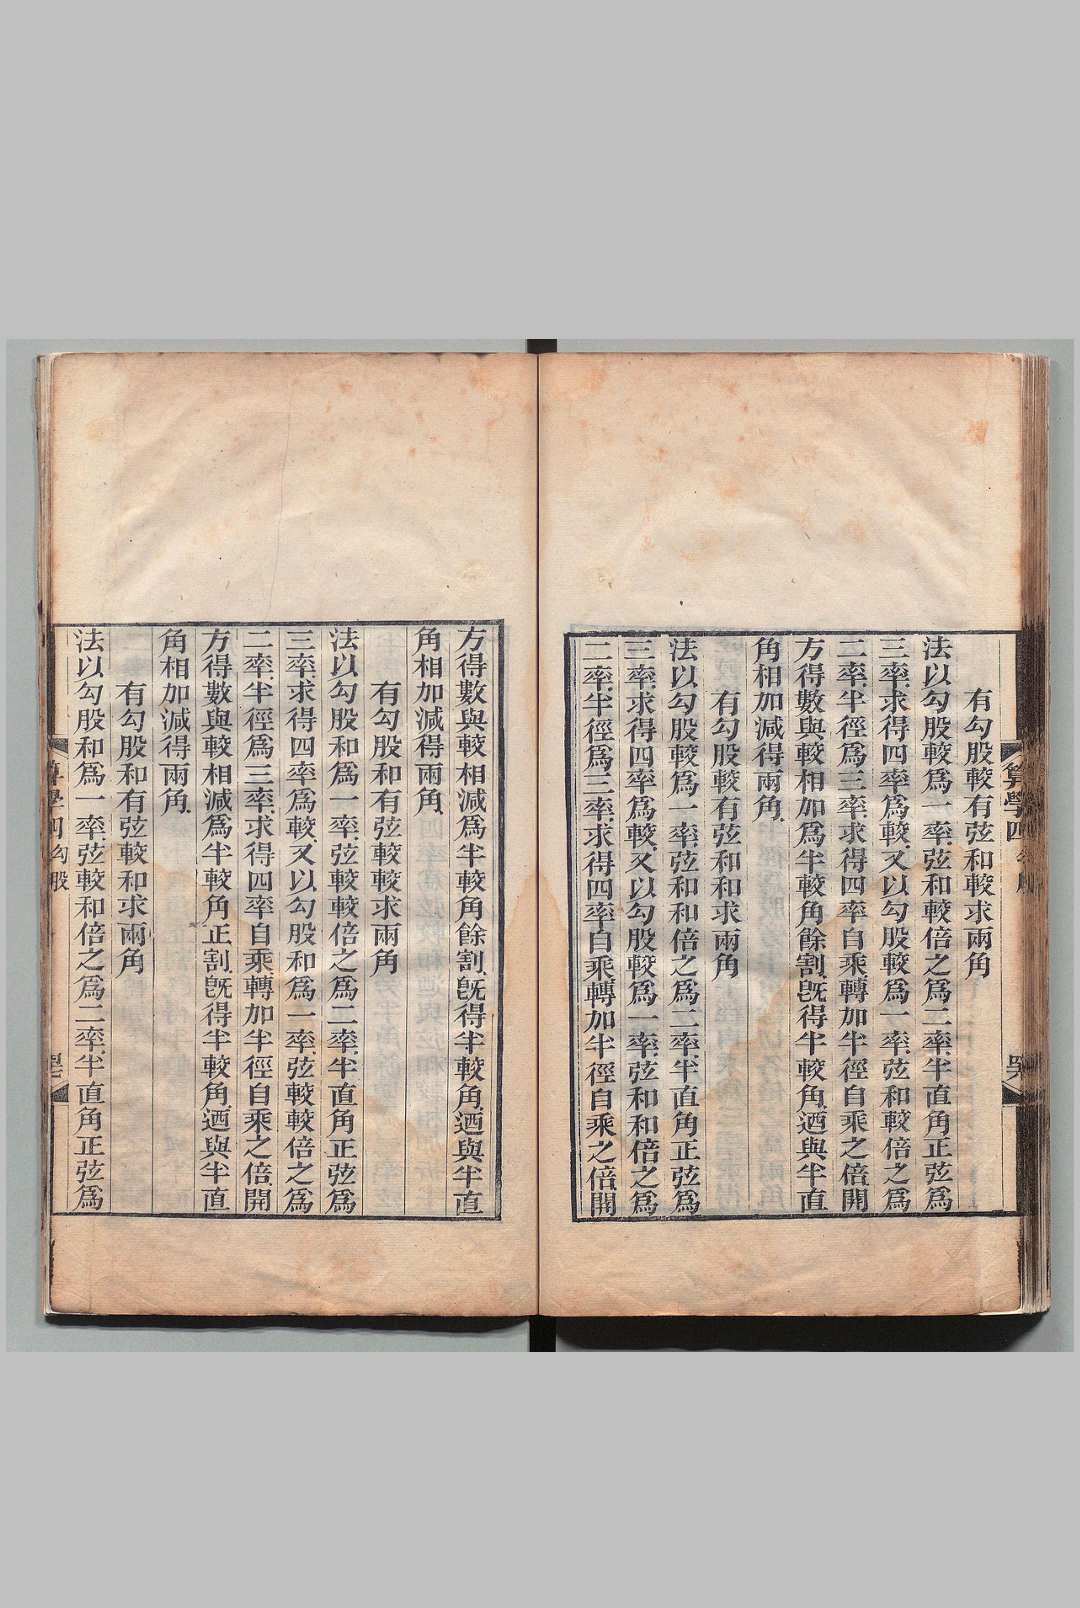 有勾股較有弦和較求兩角
法以勾股較爲一率弦和較倍之爲二率半直角正弦爲
三率求得四率爲較又以勾股較爲一率弦和較倍之爲
二率半徑爲三率求得四率自乘轉加半徑自乘之倍開
方得數與較相加爲半較角餘割旣得半較角迺與半直
角相加減得兩角
有勾股較有弦和和求兩角
法以勾股較爲一率弦和和倍之爲二率半直角正弦爲
三率求得四率爲較又以勾股較爲一率弦和和倍之爲
二率半徑爲三率求得四率自乘轉加半徑自乘之倍開
方得數與較相減爲半較角餘割旣得半較角迺與半直
角相加減得兩角
有勾股和有弦較較求兩角
法以勾股和爲一率弦較較倍之爲二率半直角正弦爲
三率求得四率爲較又以勾股和爲一率弦較較倍之爲
二率半徑爲三率求得四率自乘轉加半徑自乘之倍開
方得數與較相減爲半較角正割旣得半較角迺與半直
角相加減得兩角
有勾股和有弦較和求兩角
法以勾股和爲一率弦較和倍之爲二率半直角正弦爲
算學四 勾股